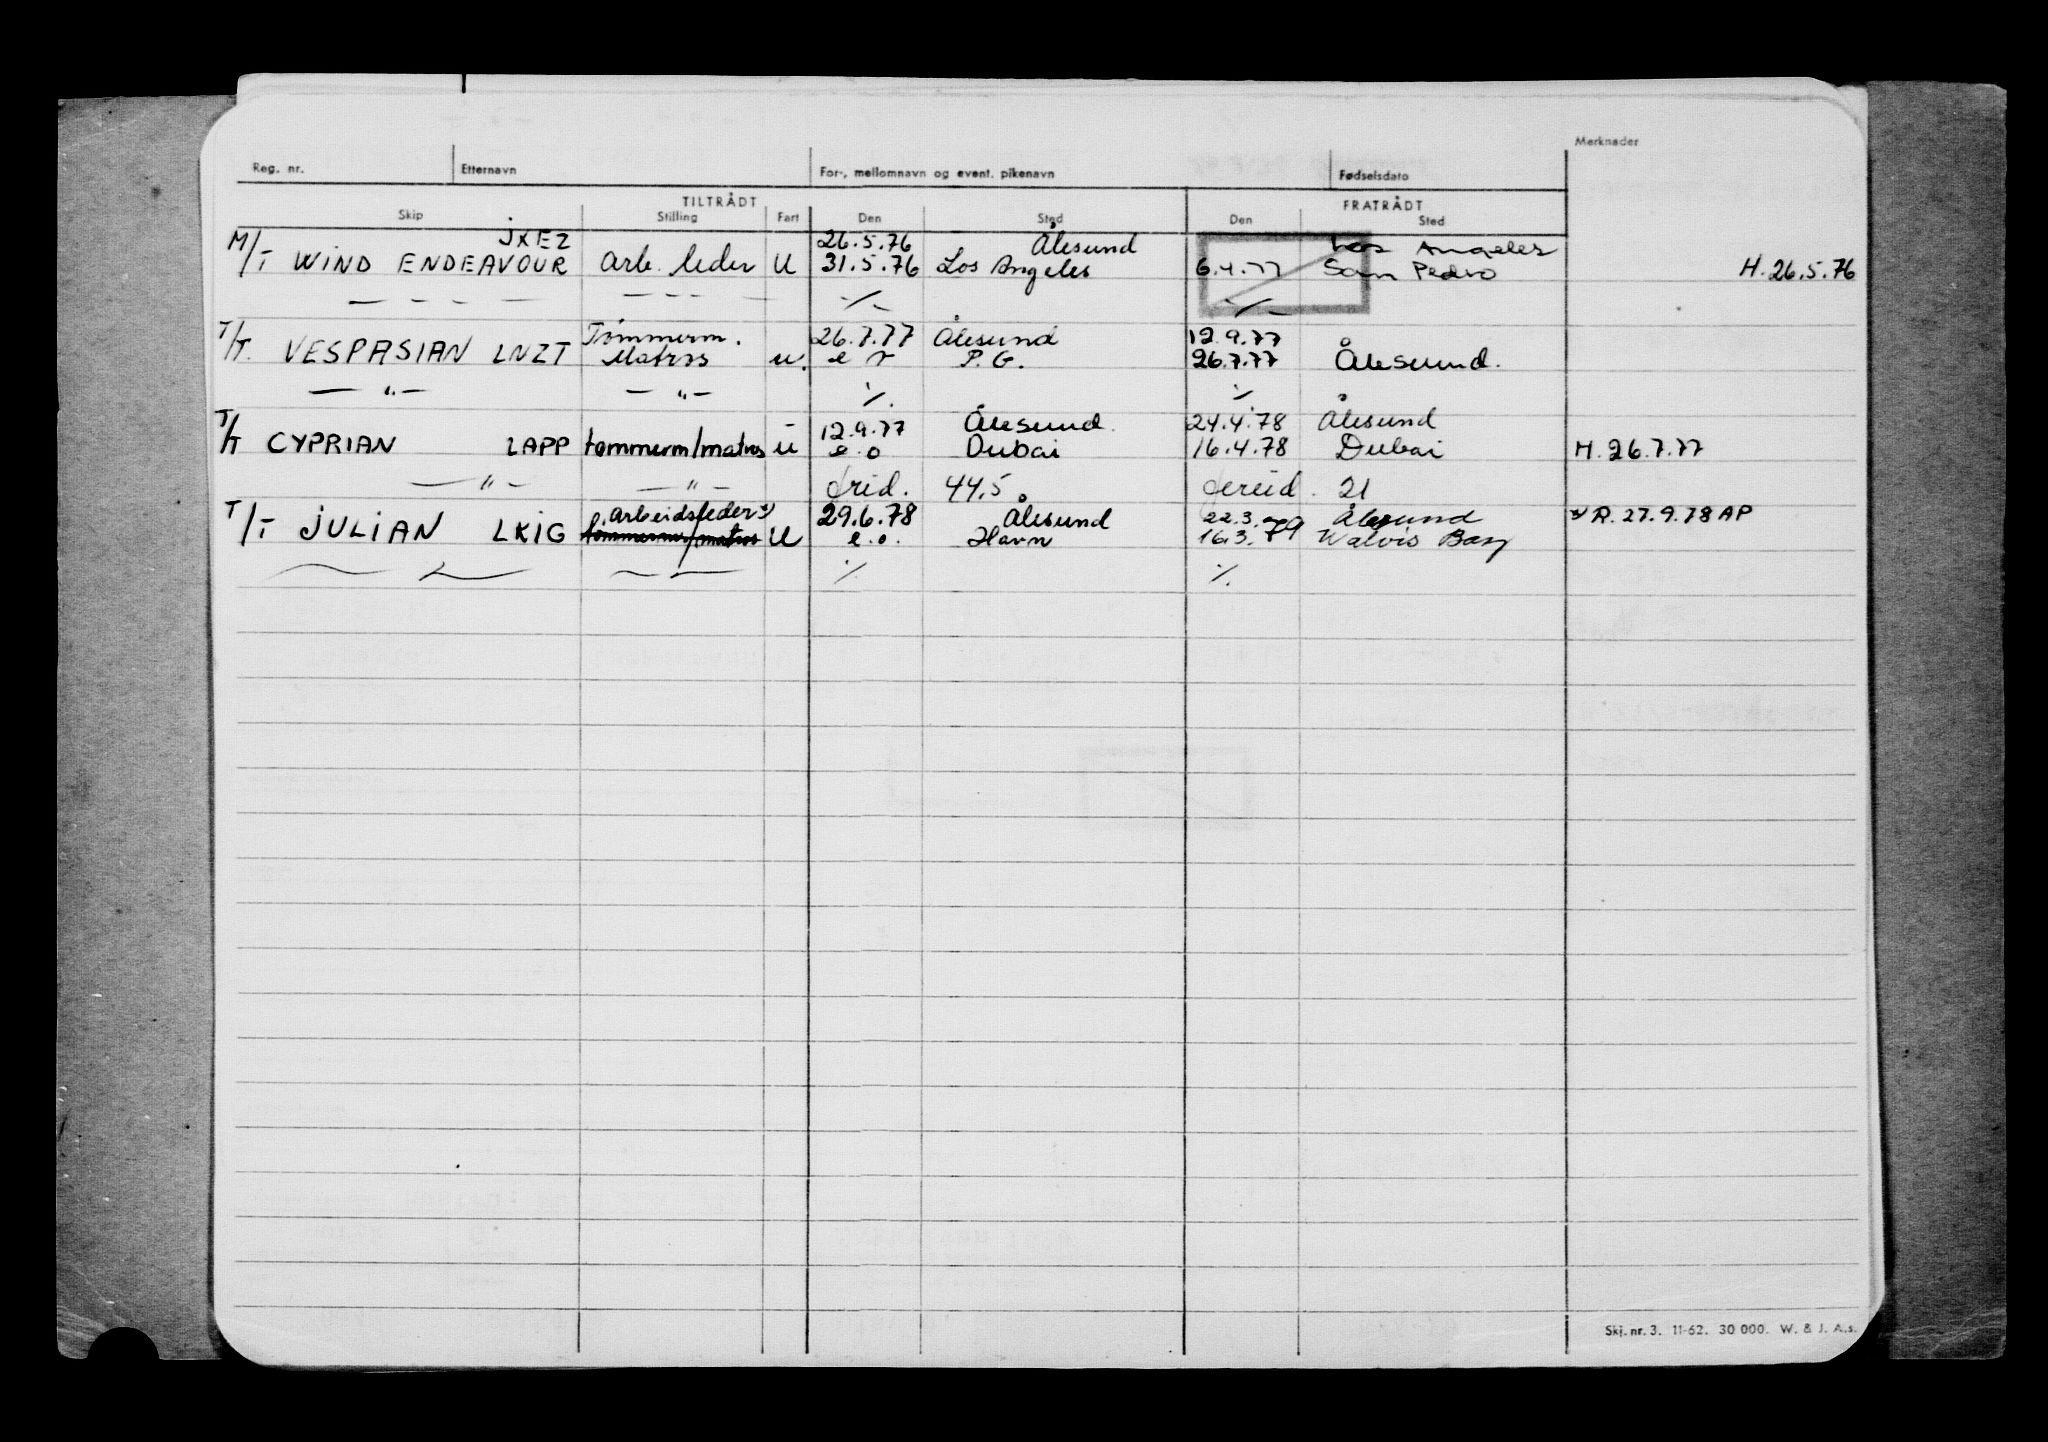 Merknader
Reg. nr. Etternavn For-, mellomnavn og event. pikenavn Fødselsdato
TILTRÅDT FRATRÅDT
Skip Stilling Fart Den Sted Den Sted
JXEZ 26.5.76 Ålesund Los Angeles
M/T WIND ENDEAVOUR arb. leder U 31.5.76 Los Angeles 6.4.77 San Pedro H. 26.5.76
— - - — — - - — ٪ ٪
Tømmerm. 26.7.77 Ålesund 12.9.77
T/T. VESPASIAN LNZT Matros u. e r P.G. 26.7.77 Ålesund.
— " — — " — ٪. ٪
12.9.77 Ålesund. 24.4.78 Ålesund
T/T CYPRIAN LAPP tømmerm/matros U e.o Dubai 16.4.78 Dubai H. 26.7.77
— " — — " — 44,5 21
arbeidsleder x) 29.6.78 Ålesund 22.3.79 Ålesund x) R. 27.9.78 AP
T/T JULIAN LKIG tømmerm/matros U e.o. Havn 16.3.79 Walvis Bay
٪. ٪.
Skj. nr. 3. 11-62. 30 000. W. & J. A.s.